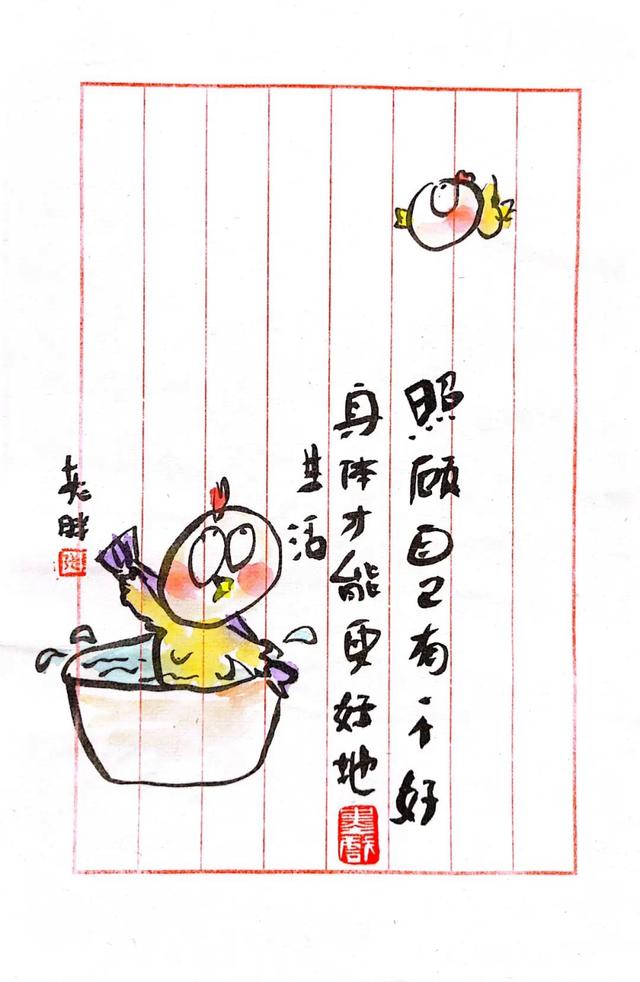 照顾自己有个好
身体才能更好地
生活